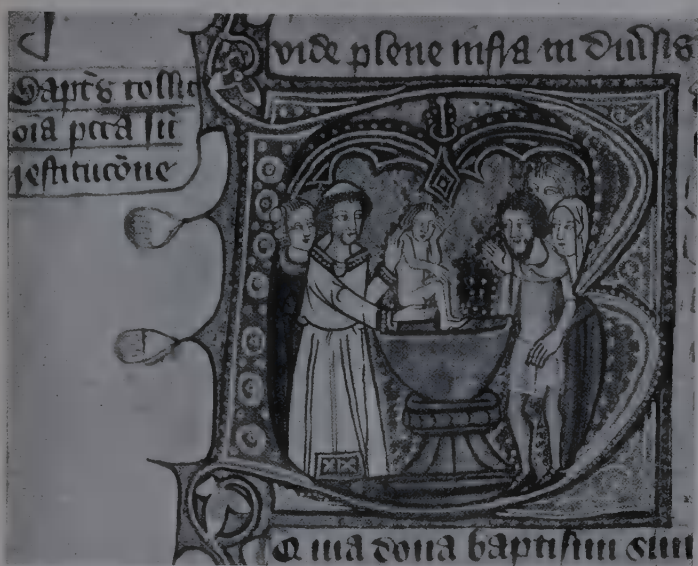 vide plene infra in diu̅sis
Bapt̅s tollit
oi̅a pcc̅a sn̅
restituco̅ne
Quia dona baptismi sunt